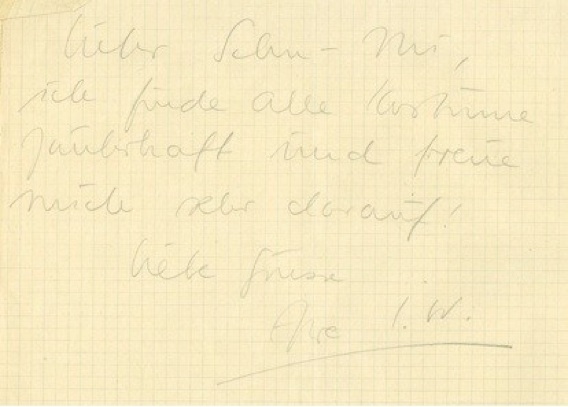 Lieber Schu-Mi,
ich finde alle Kostüme
zauberhaft und freue
mich sehr darauf!
Liebe Grüsse
Ihre I. W.